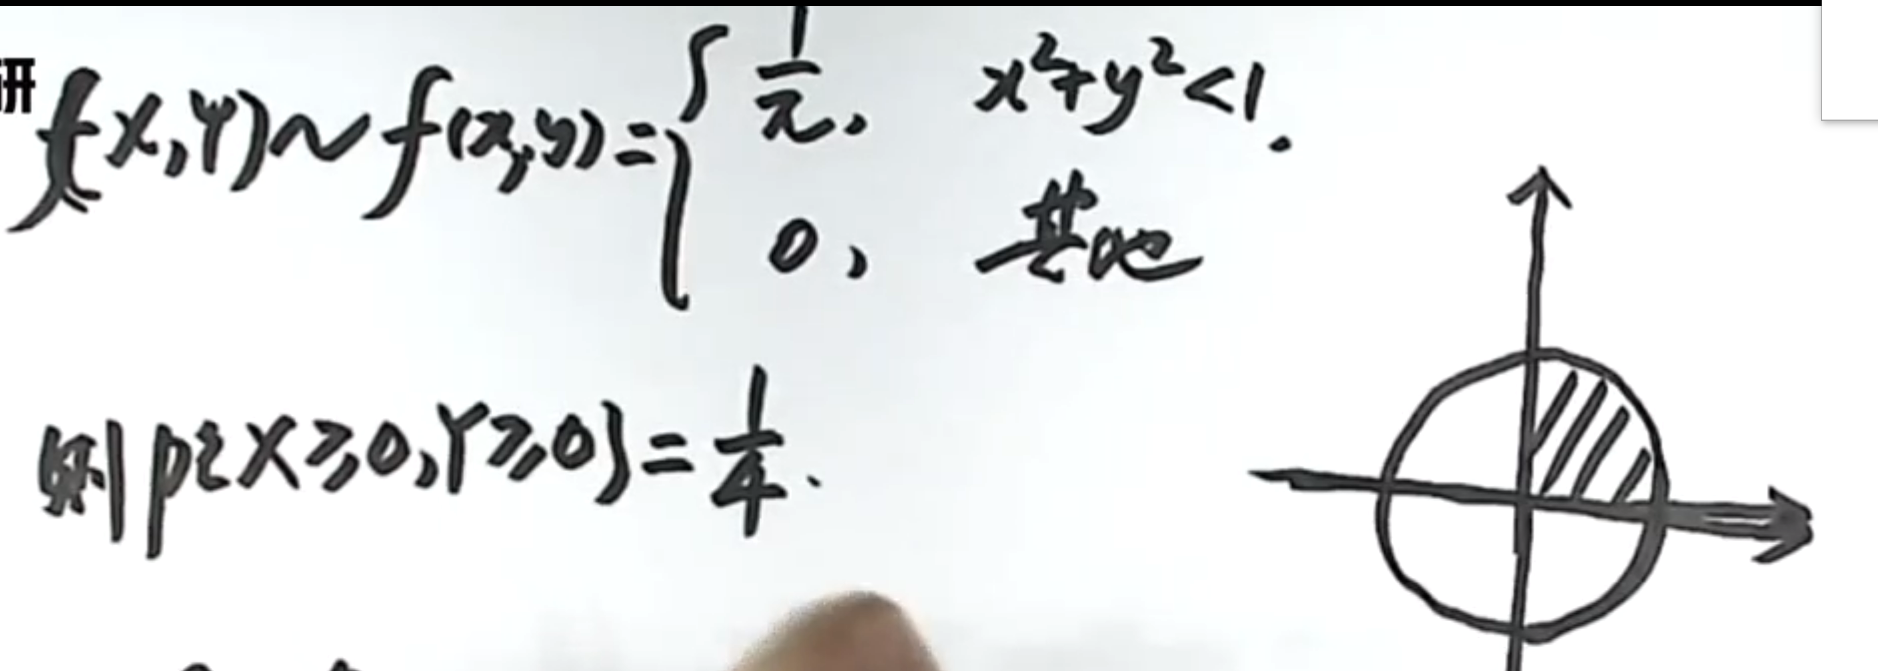 研
(X,Y)~f(x,y)={ 1/π, x²+y²<1.
0, 其他
则P{X≥0,Y≥0}=1/4.